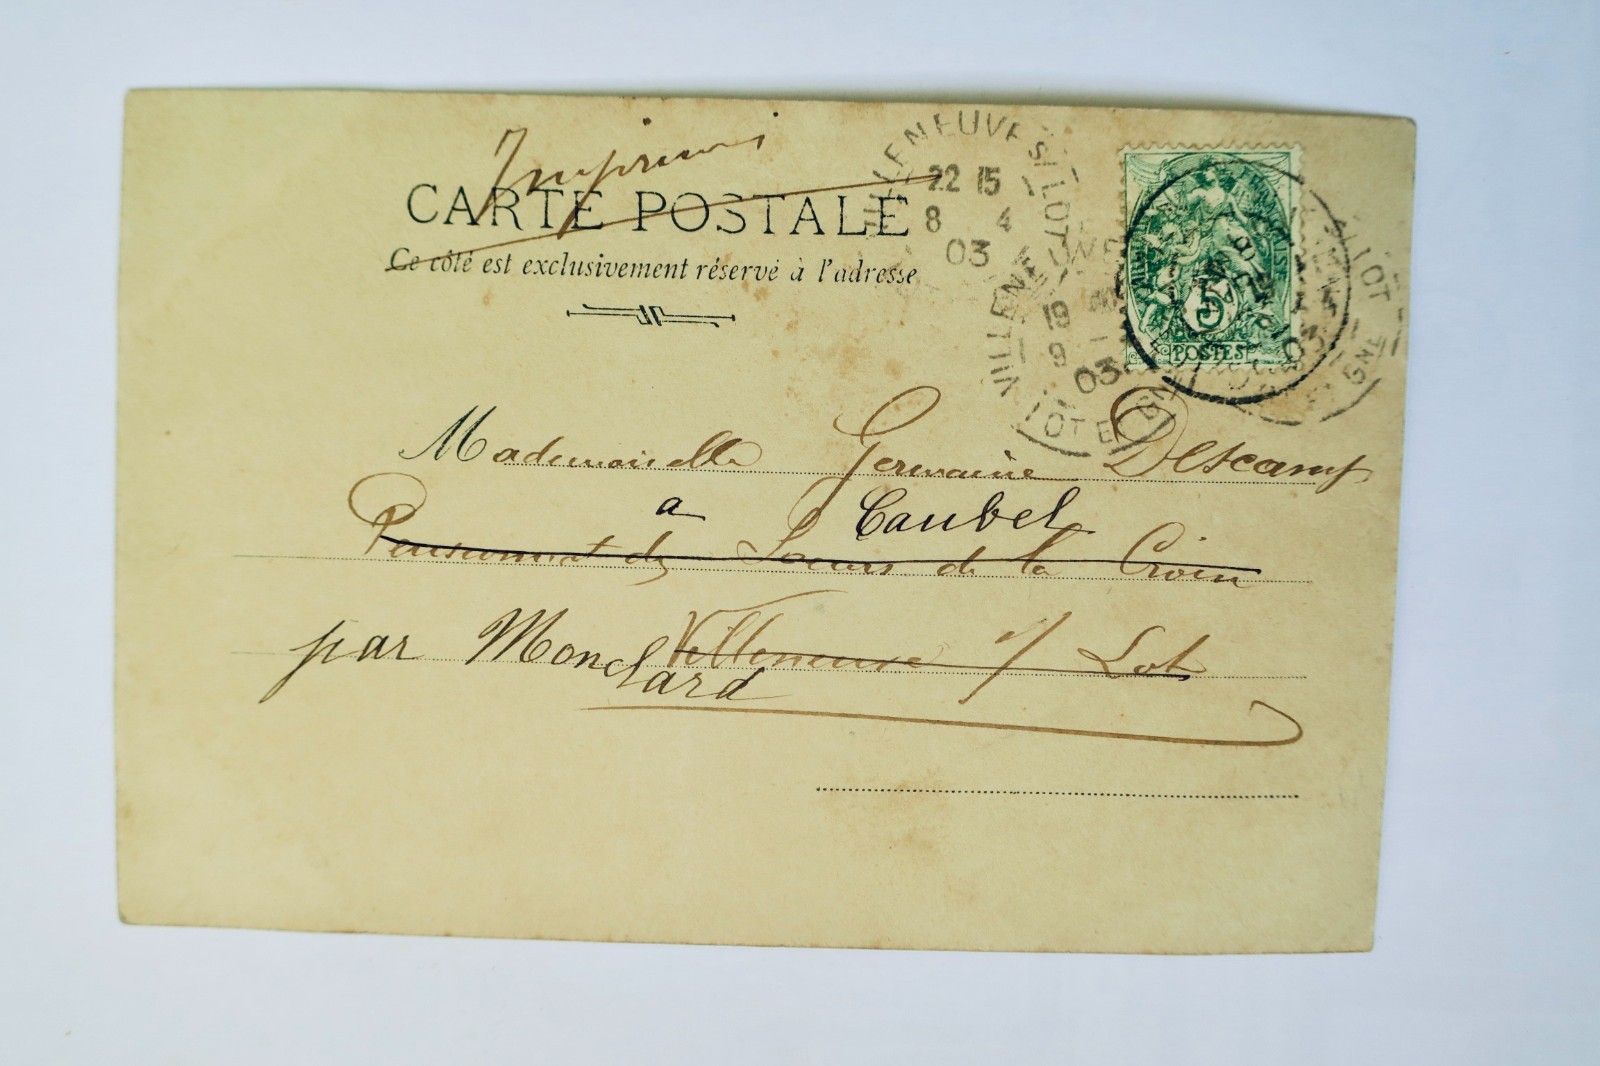 Imprimé
CARTE POSTALE
Ce côté est exclusivement réservé à l'adresse
VILLENEUVE S/ LOT
22 15
8 4
03
VILLENEUVE
19
9
03
LOT ET
5
POSTES
LOT
Mademoiselle Germaine Descamps
a Caubel
Pensionnat des Soeurs de la Croix
par Monclard
Villeneuve s/ Lot